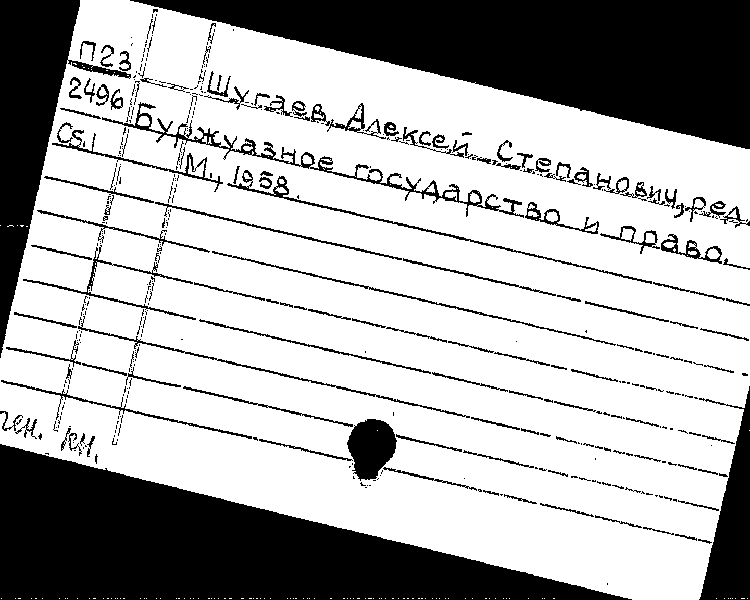 П23
2496
Cs.1
Шугаев, Алексей Степанович, ред.
Буржуазное государство и право.
М., 1958.
ген. кн.